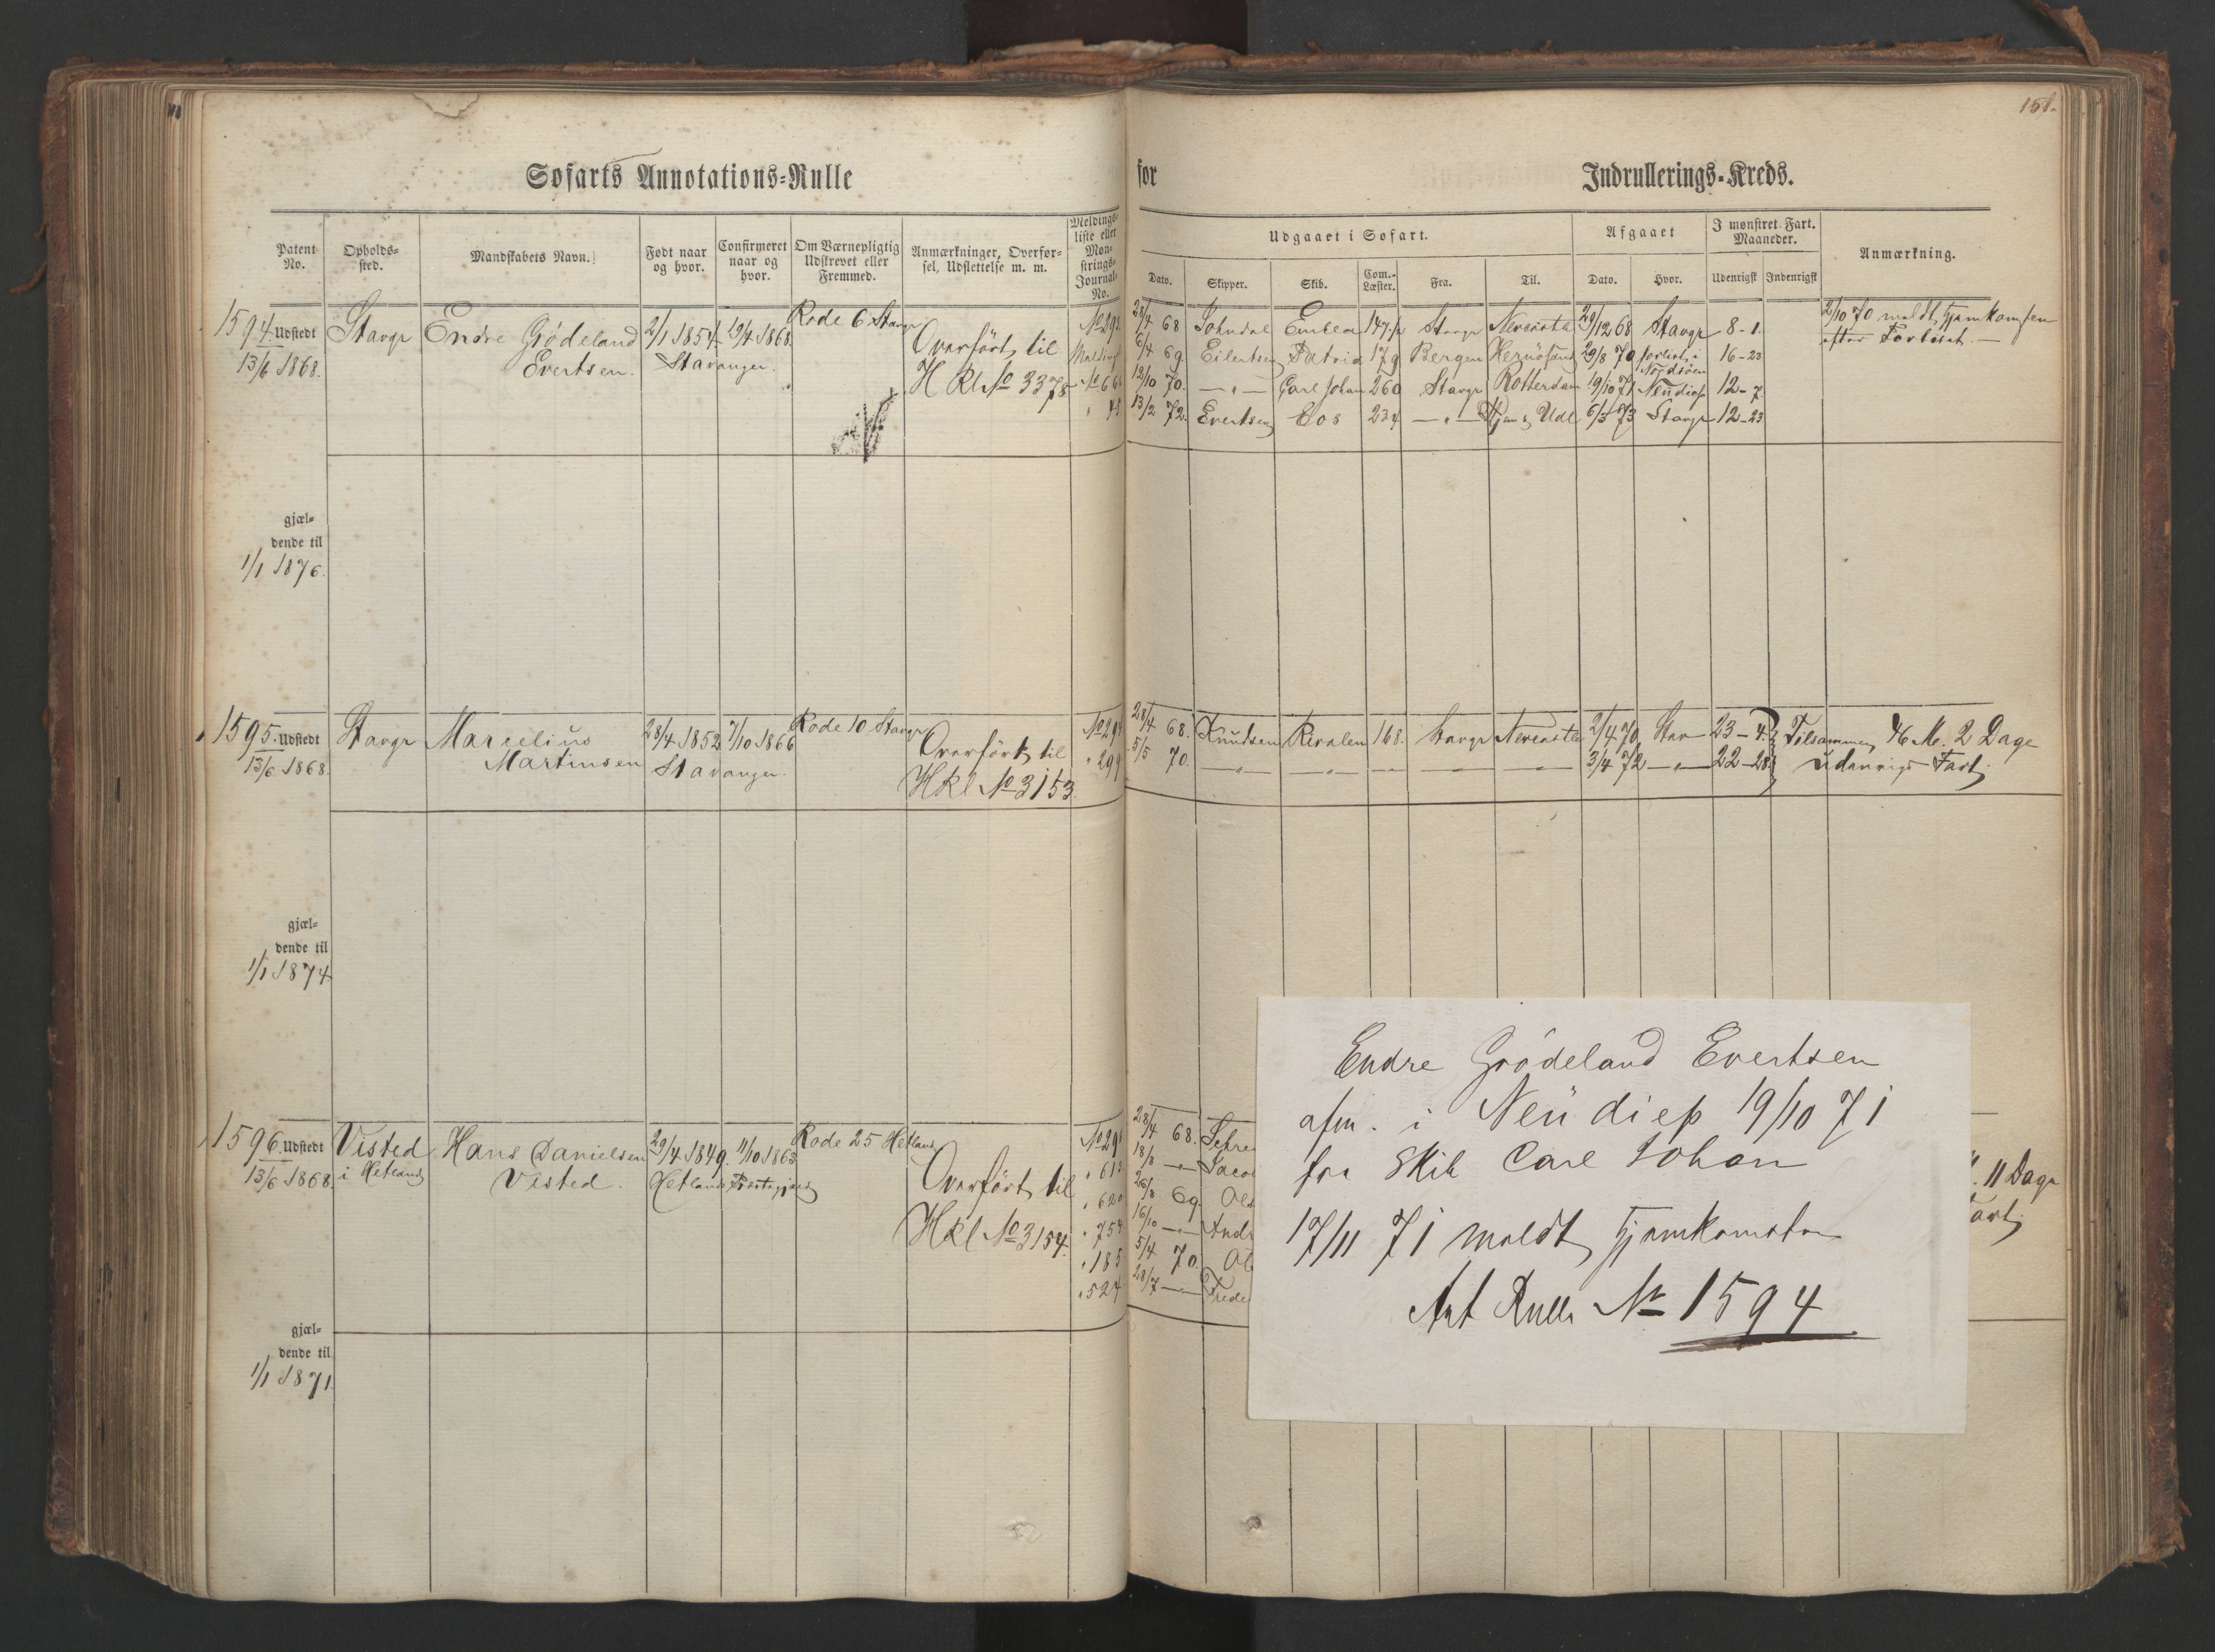 151.
Søfarts Annotations-Rulle
for
Indrullerings-Kreds.
Patent No.
Opholds-sted.
Mandskabets Navn.
Født naar og hvor.
Confirmeret naar og hvor.
Om Værnepligtig Udskrevet eller Fremmed.
Anmærkninger, Overførsel, Udslettelse m. m.
Meldings-liste eller Mønstrings-Journal-No.
Udgaaet i Søfart.
Dato.
Skipper.
Skib.
Com.-Læster.
Fra.
Til.
Afgaaet
Dato.
Hvor.
I mønstret Fart. Maaneder.
Udenrigsk
Indenrigsk
Anmærkning.
1594 Udstedt
13/6 1868.
Stavgr
Endre Grödeland
Evertsen.
2/1 1854
Stavanger.
19/4 1868.
Rode 6 Stavgr
Overført til
H Kl No 3378
28/4 68 Emblem Stavgr Newcastle 29/12 68 Stavgr 8-1.
6/4 69 Eilertsen Patria 179 Bergen Hernösand 29/8 70 forlist i Nordsøen 16-23
12/10 70. —„— Carl Johan 260 Stavgr Rotterdam 19/10 71 Neudiep 12-7
13/2 72. Evertsen Eos 234 —„— Hjem & Udl 6/3 73 Stavgr 12-23
2/10 70 meldt Hjemkomsten
efter Forliset.
gjæl-
dende til
1/1 1876.
1595. Udstedt
13/6 1868.
Stavgr
Marcelius
Martinsen
28/4 1852
Stavanger.
7/10 1866
Rode 10 Stavgr
Overført til
Hkl No 3153.
„ 299
28/4 68. Knudsen 168. Stavgr Newcastle 2/4 70 Stav 23-4.
5/5 70. —„— —„— — — — 3/4 72 —„— 22-28.
Tilsammen 46 M. 2 Dage
udenrigs Fart.
gjæl-
dende til
1/1 1874
1596. Udstedt
13/6 1868.
Visted
i Hetland
Hans Danielsen
Visted.
29/4 1849.
Hetland
11/10 1863
Rode 25 Hetland
Overført til
Hkl No 3154.
„ 620
„ 754
„ 185
„ 527
28/4 68.
18/8 —„— Jaco
26/8 69
16/10 —„— Andr
5/4 70.
28/7 —„— Frede
11 Dage
art.
gjæl-
dende til
1/1 1871.
Endre Grödeland Evertsen
afm. i Neu diep 19/10 71
fra Skib Carl Johan
17/11 71 meldt Hjemkomsten
Ant Rulle No 1594